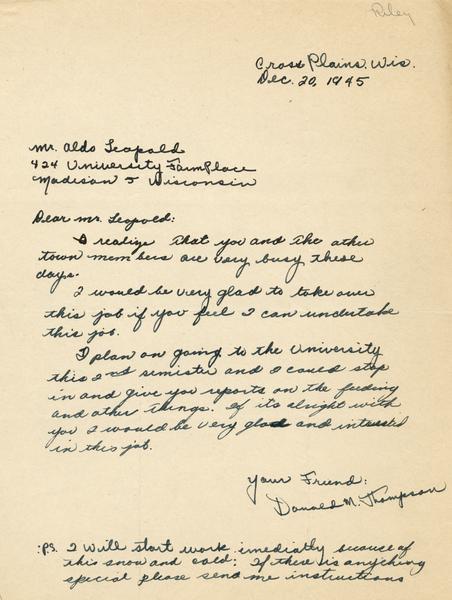 Riley
Cross Plains, Wis.
Dec. 20, 1945
Mr. Aldo Leopold
424 University Farm Place
Madison 5 Wisconsin
Dear Mr. Leopold:
I realize that you and the other
town members are very busy these
days.
I would be very glad to take over
this job if you feel I can undertake
this job.
I plan on going to the University
this 2nd simister and I could stop
in and give you reports on the feeding
and other things. If its alright with
you I would be very glad and intersted
in this job.
Your Friend:
Donald M. Thompson
:P.S. I will start work imediatly because of
this snow and cold: If there is anything
special please send me instructions